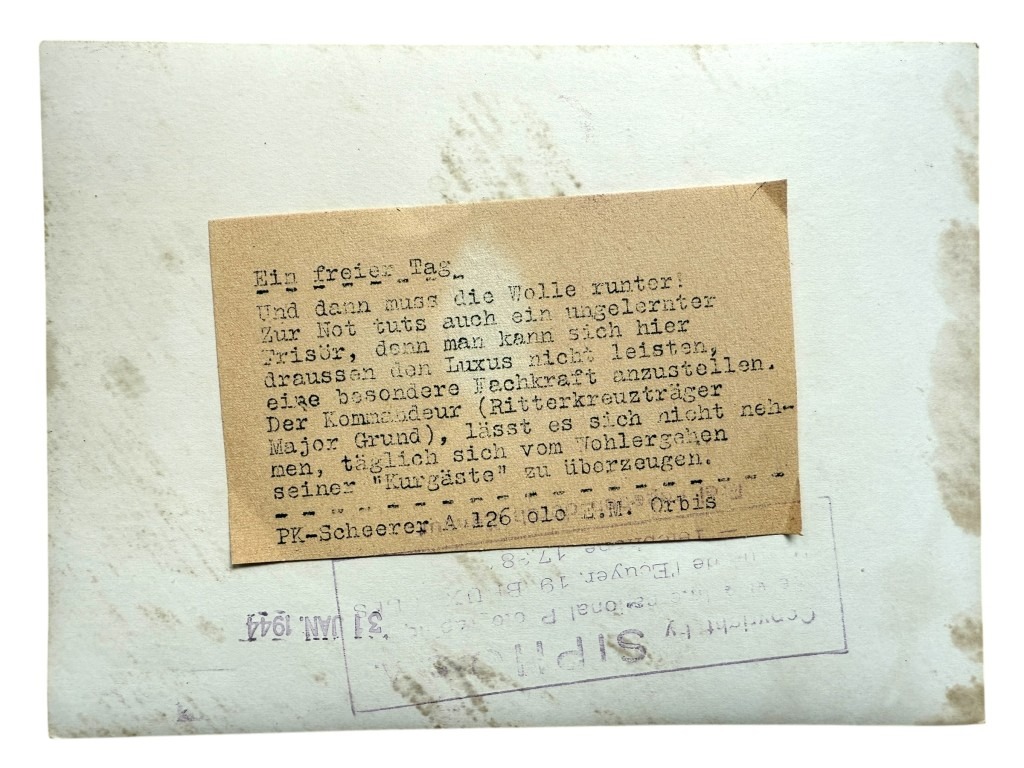 Ein freier Tag
Und dann muss die Wolle runter!
Zur Not tuts auch ein ungelernter
Frisör, denn man kann sich hier
draussen den Luxus nicht leisten,
eine besondere Fachkraft anzustellen.
Der Kommandeur (Ritterkreuzträger
Major Grund), lässt es sich nicht neh-
men, täglich sich vom Wohlergehen
seiner "Kurgäste" zu überzeugen.
PK-Scheerer A 126 olo E.M. Orbis
31 JAN. 1944
Copyright by
SIPHO
de l'Ecuyer. 19.